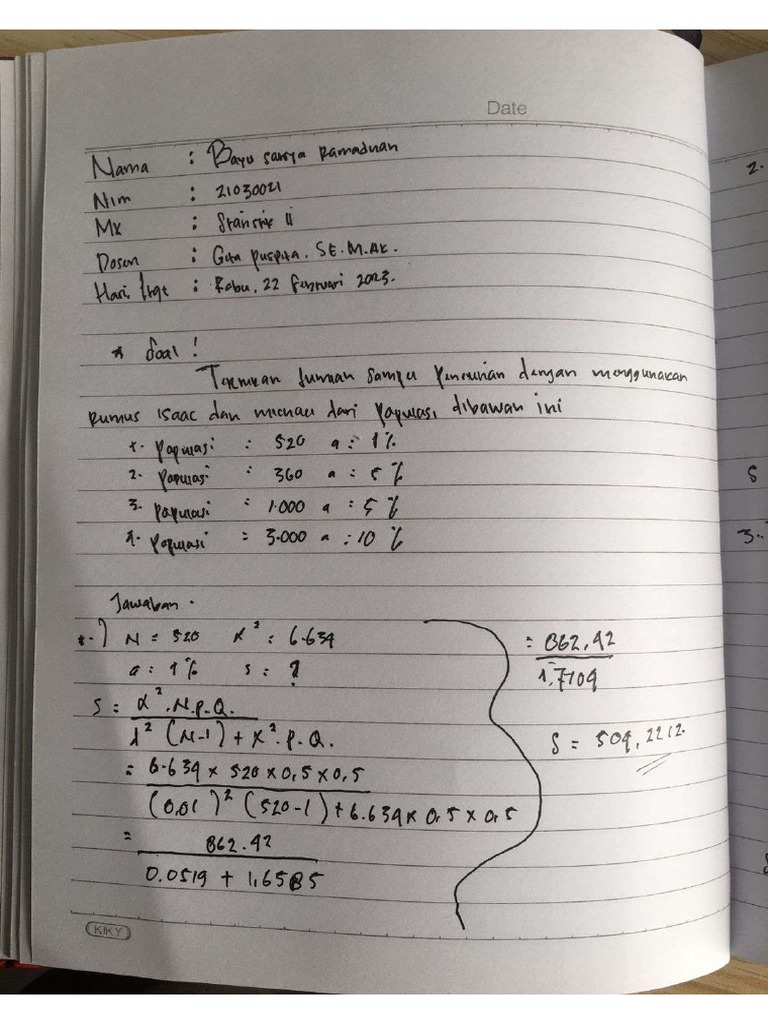 Date
Nama : Bayu sarsya Ramadhan
Nim : 21030021
Mk : Statistik II
Dosen : Gita puspita. SE.M.AK.
Hari, /tgt : Rabu, 22 februari 2023.
2.
* Soal !
Tentukan Jumlah sampel Penelitian dengan menggunakan
Rumus Isaac dan michael dari Populasi dibawah ini
1. Populasi : 520 a : 1%
2. Populasi : 360 a : 5%
3. Populasi = 1.000 a : 5%
4. Populasi = 3.000 a : 10%
S
3.
Jawaban.
1.) N = 520 X² : 6.634
a : 1% s : ?
S : X². N.P.Q.
λ² (N-1) + X². P. Q.
= 6.634 x 520 x 0,5 x 0,5
(0,01)² (520-1) + 6.634 x 0,5 x 0,5
= 862.42
0.0519 + 1,6585
= 862,42
1,7104
S = 504,2212.
KIKY